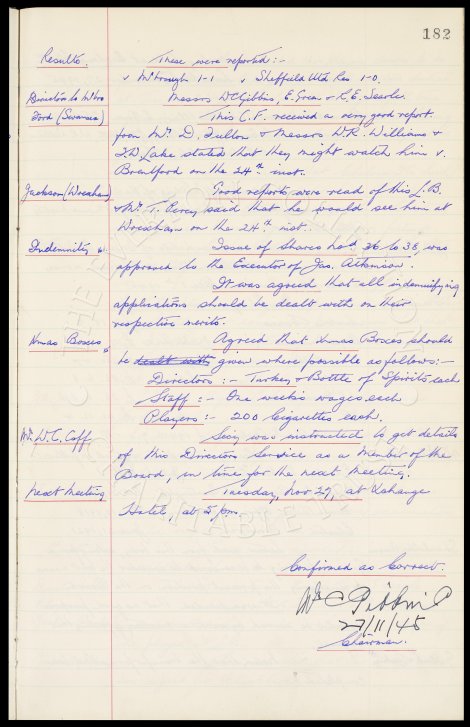 182
Results. These were reported:-
v M'brough 1-1 v Sheffield Utd Res 1-0.
Directors to M'bro Messrs W C Gibbins, E. Green & R. E. Searle.
Ford (Swansea) This C.F. received a very good report
from Mr D. Fulton & Messrs W.R. Williams &
T.D Lake stated that they might watch him v.
Brentford on the 24th inst.
Jackson (Wrexham) Good reports were read of this L.B.
& Mr T. Percy said that he would see him at
Wrexham on the 24th inst.
Indemnity Issue of Shares No's 36 to 38, was
approved to the Executor of Jas. Atkinson.
It was agreed that all indemnifying
applications should be dealt with on their
respective merits.
Xmas Boxes Agreed that Xmas Boxes should
be dealt with given where possible as follows:-
Directors:- Turkey & Bottle of Spirits each
Staff:- One week's wages each
Players:- 200 Cigarettes each.
Mr W. C. Cuff Secy was instructed to get details
of his Directors Service as a Member of the
Board, in time for the next Meeting.
Next Meeting Tuesday, Nov 27, at Exchange
Hotel, at 5 pm.
Confirmed as Correct.
Wm C Gibbins
27/11/45
Chairman.